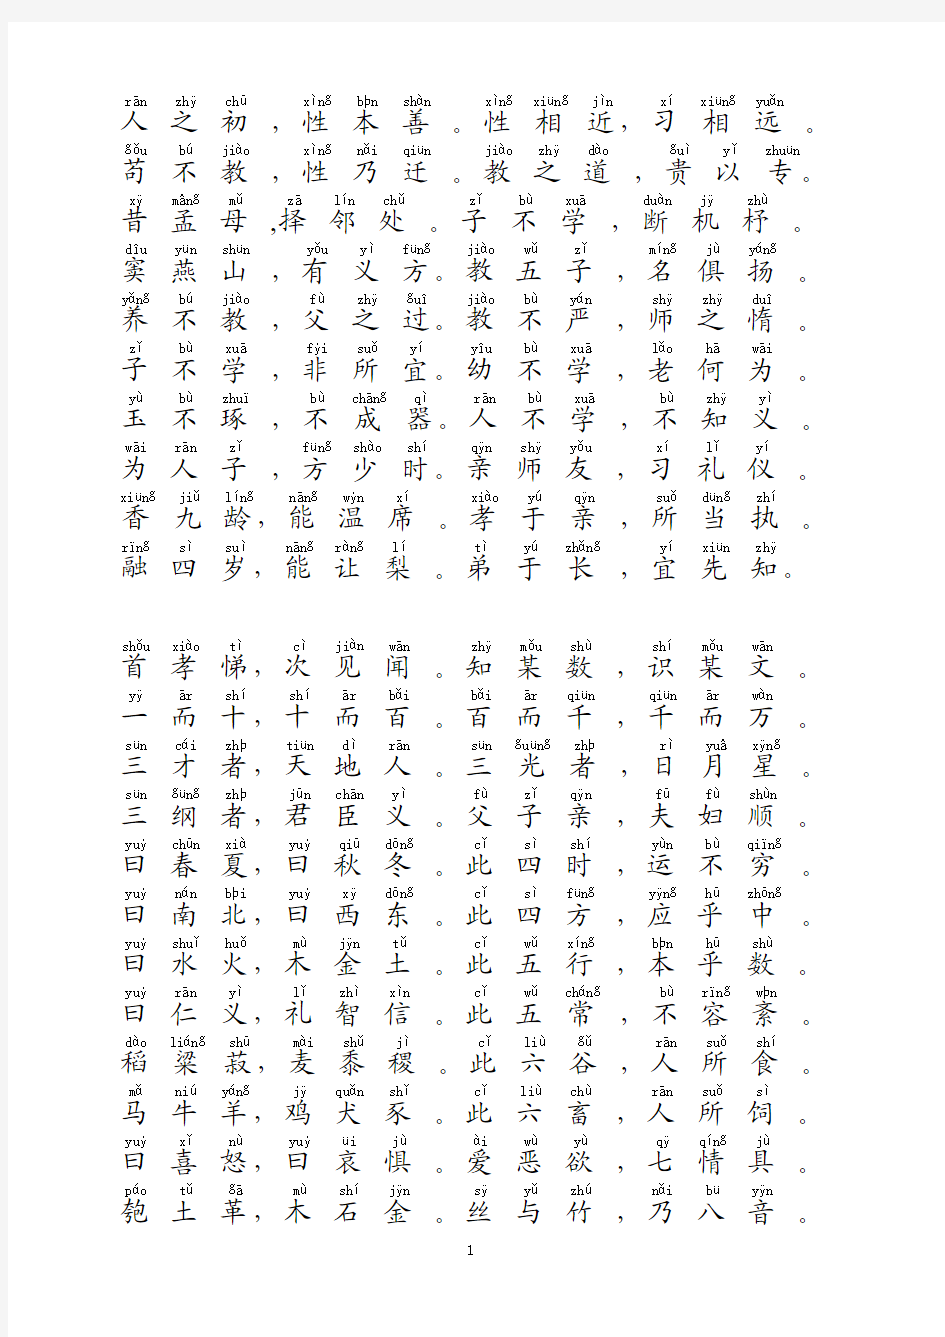 rān zhȳ chū xìng bþn shàn xìng xiüng jìn xí xiüng yuǎn
人之初，性本善。性相近，习相远。
gǒu bú jiào xìng nǎi qiün jiào zhȳ dào guì yǐ zhuün
苟不教，性乃迁。教之道，贵以专。
xȳ mâng mǔ zā lín chǔ zǐ bù xuā duàn jȳ zhù
昔孟母,择邻处。子不学，断机杼。
dîu yün shün yǒu yì füng jiào wǔ zǐ míng jù yáng
窦燕山，有义方。教五子，名俱扬。
yǎng bú jiào fù zhȳ guî jiào bù yán shȳ zhȳ duî
养不教，父之过。教不严，师之惰。
zǐ bù xuā fýi suǒ yí yîu bù xuā lǎo hā wāi
子不学，非所宜。幼不学，老何为。
yù bù zhuï bù chāng qì rān bù xuā bù zhȳ yì
玉不琢，不成器。人不学，不知义。
wāi rān zǐ füng shào shí qȳn shȳ yǒu xí lǐ yí
为人子，方少时。亲师友，习礼仪。
xiüng jiǔ líng nāng wýn xí xiào yú qȳn suǒ düng zhí
香九龄，能温席。孝于亲，所当执。
rïng sì suì nāng ràng lí tì yú zhǎng yí xiün zhȳ
融四岁，能让梨。弟于长，宜先知。
shǒu xiào tì cì jiàn wān zhȳ mǒu shù shí mǒu wān
首孝悌，次见闻。知某数，识某文。
yȳ ār shí shí ār bǎi bǎi ār qiün qiün ār wàn
一而十，十而百。百而千，千而万。
sün cái zhþ tiün dì rān sün guüng zhþ rì yuâ xȳng
三才者，天地人。三光者，日月星。
sün güng zhþ jūn chān yì fù zǐ qȳn fū fù shùn
三纲者，君臣义。父子亲，夫妇顺。
yuý chūn xià yuý qiū dōng cǐ sì shí yùn bù qiïng
曰春夏，曰秋冬。此四时，运不穷。
yuý nán bþi yuý xȳ dōng cǐ sì füng yȳng hū zhōng
曰南北，曰西东。此四方，应乎中。
yuý shuǐ huǒ mù jȳn tǔ cǐ wǔ xíng bþn hū shù
曰水火，木金土。此五行，本乎数。
yuý rān yì lǐ zhì xìn cǐ wǔ cháng bù rïng wþn
曰仁义，礼智信。此五常，不容紊。
dào liáng shū mài shǔ jì cǐ liù gǔ rān suǒ shí
稻粱菽，麦黍稷。此六谷，人所食。
mǎ niú yáng jȳ quǎn shǐ cǐ liù chù rān suǒ sì
马牛羊，鸡犬豕。此六畜，人所饲。
yuý xǐ nù yuý üi jù ài wù yù qȳ qíng jù
曰喜怒，曰哀惧。爱恶欲，七情具。
páo tǔ gā mù shí jȳn sȳ yǔ zhú nǎi bü yȳn
匏土革，木石金。丝与竹，乃八音。
1